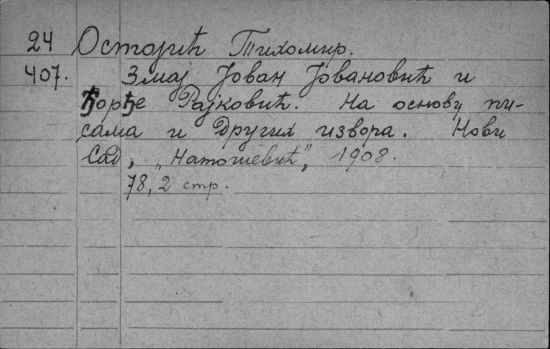 24 Остојић Тихомир.
407. Змај Јован Јовановић и
Ђорђе Рајковић. На основу пи-
сама и других извора. Нови
Сад, „Натошевић", 1908.
78, 2 стр.